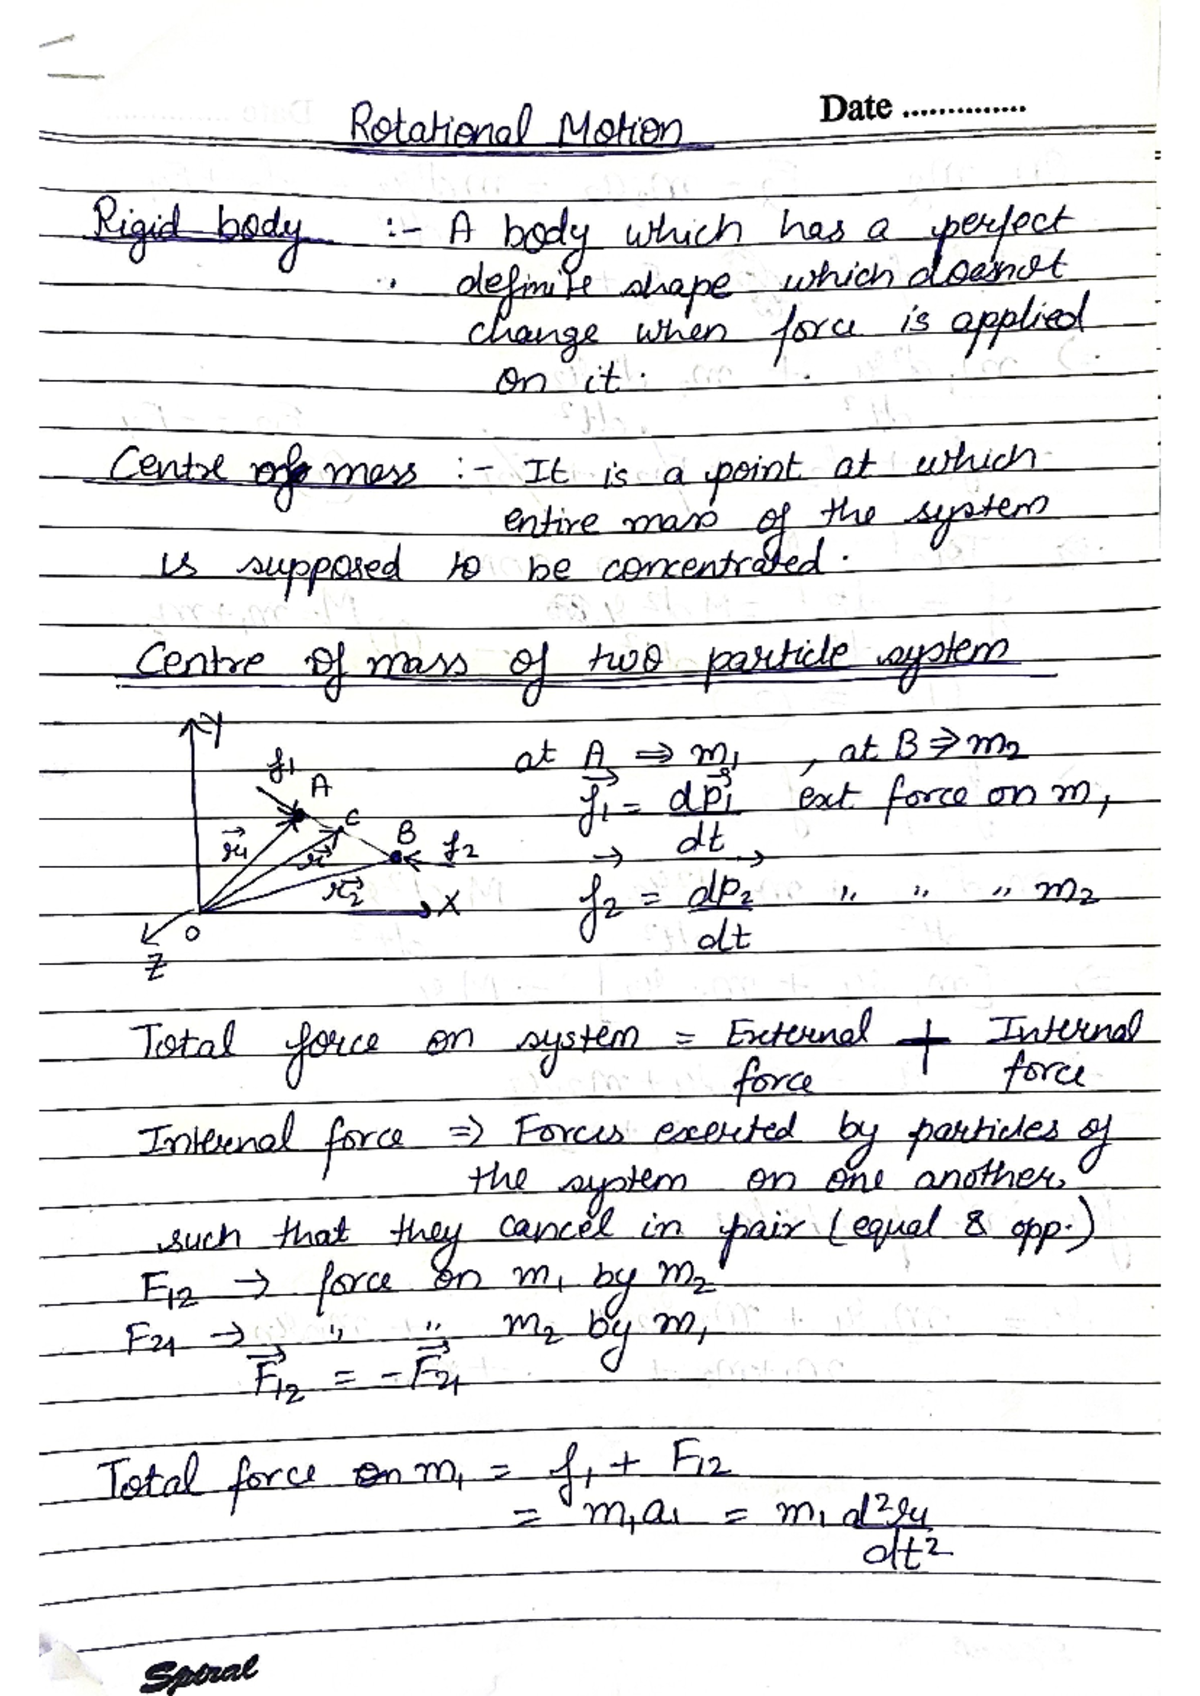 Date ..............
Rotational Motion
Rigid body :- A body which has a perfect
definite shape which doesnot
change when force is applied
on it.
Centre of mass :- It is a point at which
entire mass of the system
is supposed to be concentrated.
Centre of mass of two particle system
Y
f1
A
C
B
f2
r⃗1
r⃗
r⃗2
X
O
Z
at A ⇒ m1 , at B ⇒ m2
f⃗1 = dp⃗1/dt ext force on m1
f⃗2 = dp⃗2/dt " " " m2
Total force on system = External force + Internal force
Internal force ⇒ Forces exerted by particles of
the system on one another,
such that they cancel in pair (equal & opp.)
F12 → force on m1 by m2
F21 → " " m2 by m1
F⃗12 = - F⃗21
Total force on m1 = f1 + F12
= m1a1 = m1 d²r1/dt²
Spiral